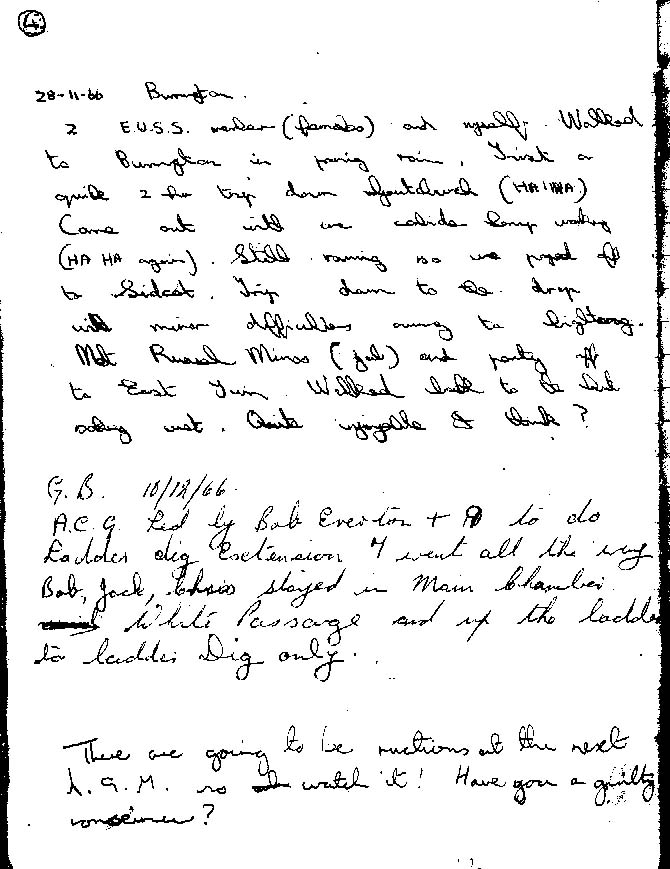 4
28-11-66 Burrington.
2 E.U.S.S. (females) and myself. Walked
to Burrington in rain.
quite 2 hr trip down (HA! HA)
Came out with one carbide lamp working
(HA HA again). Still raining so we off
to Sidcot. Trip down to the drop
with minor difficulties owing to lightening.
Met Russel (Jol) and party off
to East Twin. Walked back to the
wet. Quite enjoyable I think?
G.B. 10/12/66.
A.C.G. Led by Bob Everton + to do
Ladder dig Extension I went all the way
Bob, Jack, Chris stayed in Main Chamber
White Passage and up the ladder
to ladder Dig only.
There are going to be ructions at the next
A.G.M. so watch it! Have you a guilty
?